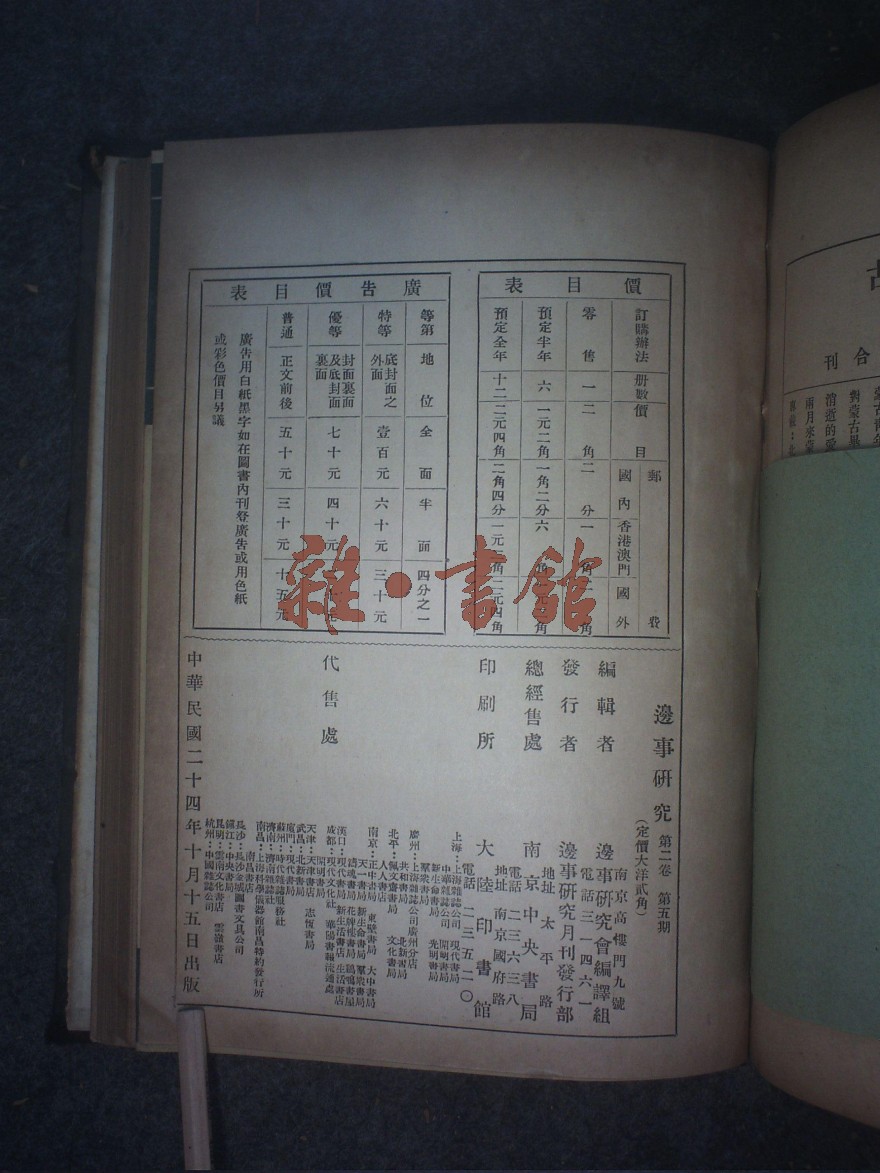 價目表
訂購辦法 册數 價目 郵費 國內 香港澳門 國外
零售 一 二角 二分
預定半年 六 一元二角 一角二分
預定全年 十二 二元四角 二角四分
廣告價目表
等第 地位 全面 半面 四分之一
特等 底封面之外面 壹百元 六十元 三十元
優等 封面裏面及底封面裏面 七十元 四十元
普通 正文前後 五十元 三十元 十五元
廣告用白紙墨字如在圖書內刊登廣告或用色紙
或彩色價目另議
邊事研究 第二卷 第五期
(定價大洋貳角)
南京高樓門九號
編輯者 邊事研究會編譯組
電話三一四六一
發行者 邊事研究月刊發行部
地址 太平路
總經售處 南京中央書局
電話二三六三八
地址 南京國府路
印刷所 大陸印書館
電話二三五二〇
代售處
上海：上海雜誌公司 現代書局
中華雜誌公司 開明書局
新生命書局 光明書局
羣衆書局
廣州：上海雜誌公司廣州分店
共和書局 北新書局
北平：佩文齋書局 文化書局
人人書店
南京：正中書局 東壁書局 大中書局
天一書局 新生命書局 羣衆書局
漢口：現代書局 新生活書店 生活書店
成都：現代文化社 華陽書報流通處
開明書局
天津：天津書局 志恆書局
武昌：北新書局
廈門：現代書局
蘇州：時代雜誌服務社
濟南：濟南雜誌社
南昌：上海科學儀器館南昌特約發行所
南昌書店
長沙：長沙金城圖書文具公司
鎭江：中央書局
昆明：雲南文化書店 雲嶺書店
杭州：中國雜誌公司
中華民國二十四年十月十五日出版
雜·書館
古
合刊